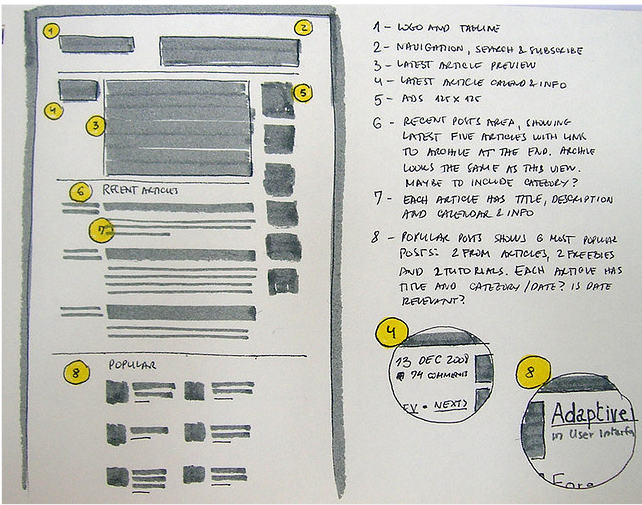 1
2
3
4
5
6 RECENT ARTICLES
7
8 POPULAR
1 - LOGO AND TAGLINE
2 - NAVIGATION, SEARCH & SUBSCRIBE
3 - LATEST ARTICLE PREVIEW
4 - LATEST ARTICLE CALEND & INFO
5 - ADS 125 X 125
6 - RECENT POSTS AREA, SHOWING
LATEST FIVE ARTICLES WITH LINK
TO ARCHIVE AT THE END. ARCHIVE
LOOKS THE SAME AS THIS VIEW.
MAYBE TO INCLUDE CATEGORY?
7 - EACH ARTICLE HAS TITLE, DESCRIPTION
AND CALENDAR & INFO
8 - POPULAR POSTS SHOWS 6 MOST POPULAR
POSTS: 2 FROM ARTICLES, 2 FREEBIES
AND 2 TUTORIALS. EACH ARTICLE HAS
TITLE AND CATEGORY/DATE? IS DATE
RELEVANT?
4
13 DEC 2008
74 COMMENTS
EV • NEXT>
8
Adaptive
in User Interfa
Fore